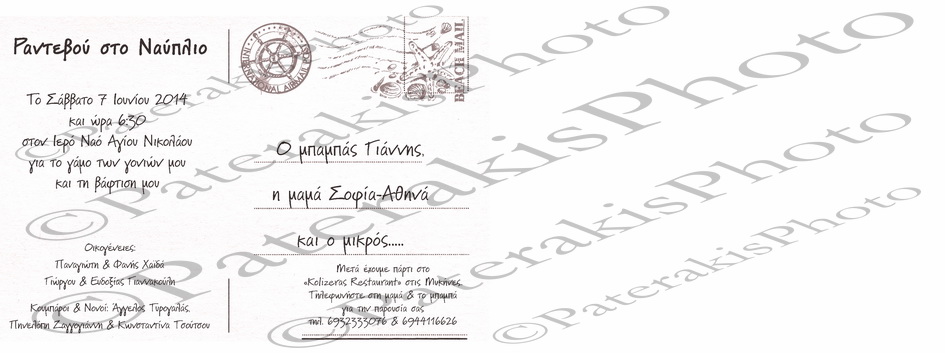 Ραντεβού στο Ναύπλιο
Το Σάββατο 7 Ιουνίου 2014
και ώρα 6:30
στον Ιερό Ναό Αγίου Νικολάου
για το γάμο των γονιών μου
και τη βάφτιση μου
Οικογένειες:
Παναγιώτη & Φανής Χαϊδά
Γιώργου & Ευδοξίας Γιαννακούλη
Κουμπάροι & Νονοί: Άγγελος Τυρογαλάς,
Πηνελόπη Ζαγγογιάννη & Κωνσταντίνα Τσούτσου
INTERNATIONAL AIRMAIL POST
BEACH MAIL
Ο μπαμπάς Γιάννης,
η μαμά Σοφία-Αθηνά
και ο μικρός.....
Μετά έχουμε πάρτι στο
«Kolizeras Restaurant» στις Μυκήνες.
Τηλεφωνήστε στη μαμά & το μπαμπά
για την παρουσία σας
τηλ. 6932333076 & 6944116626
©PaterakisPhoto
©PaterakisPhoto
©PaterakisPhoto
©PaterakisPhoto